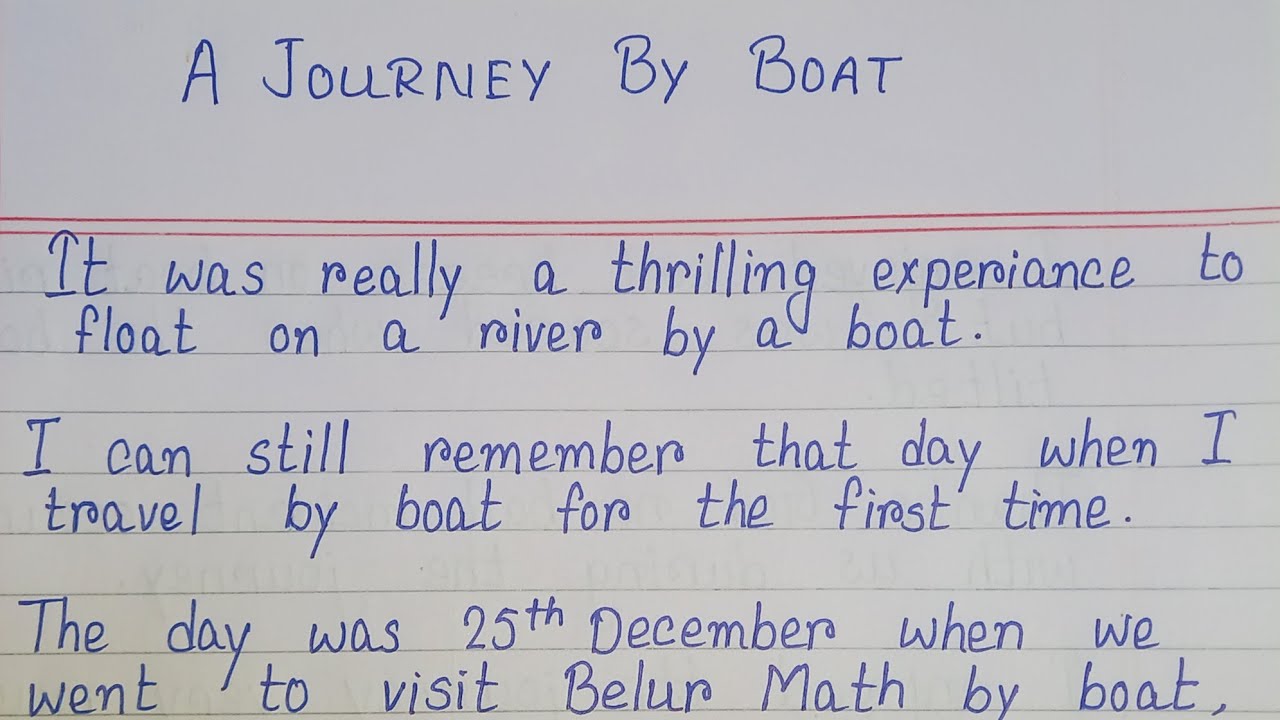 A JOURNEY BY BOAT
It was really a thrilling experiance to
float on a river by a boat.
I can still remember that day when I
travel by boat for the first time.
The day was 25th December when we
went to visit Belur Math by boat,